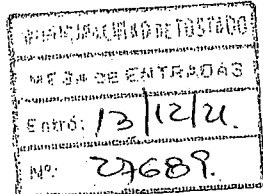 MUNICIPALIDAD DE TOSTADO
MESA DE ENTRADAS
Entró: 13/12/21.
Nº: 27689.